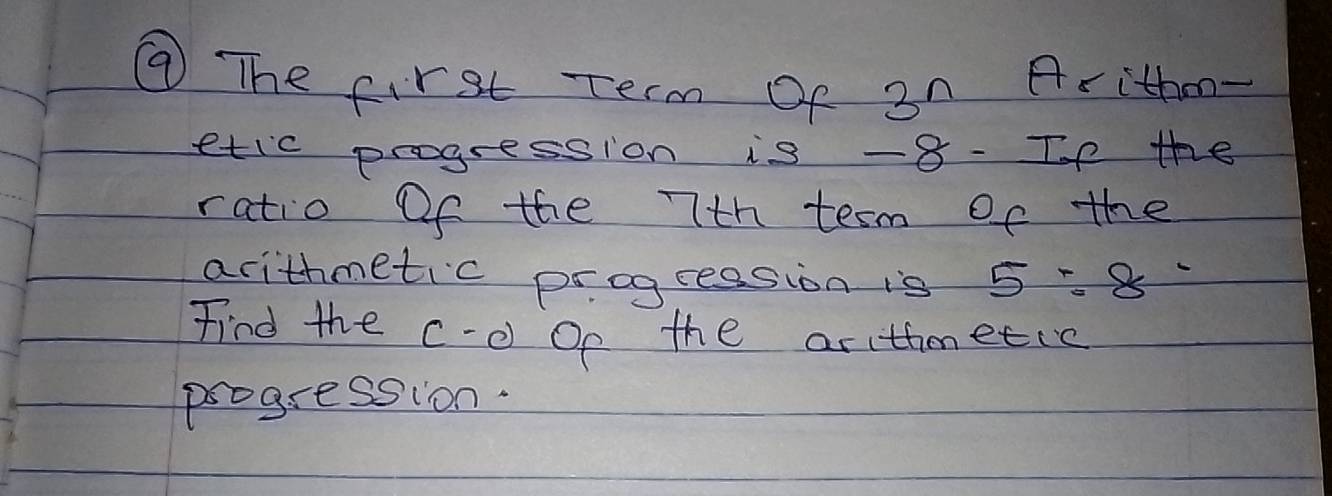 9 The first Term Of an Arithm-
etic progression is -8. If the
ratio Of the 7th term Of the
arithmetic progression is 5:8.
Find the c-d Of the arithmetic
progression.